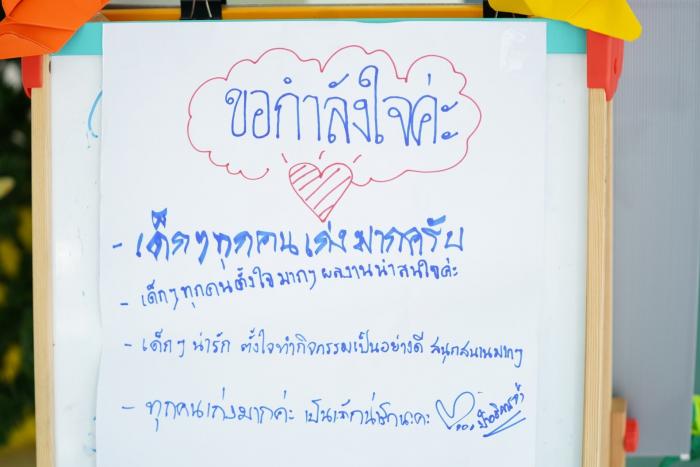 ขอกำลังใจค่ะ
- เด็กๆทุกคนเก่งมากครับ
- เด็กๆทุกคนตั้งใจมากๆ ผลงานน่าสนใจค่ะ
- เด็กๆ น่ารัก ตั้งใจทำกิจกรรมเป็นอย่างดี สนุกสนานมากๆ
- ทุกคนเก่งมากค่ะ เป็นเด็กน่ารักนะคะ